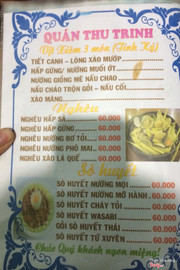 QUÁN THU TRINH
Vịt Xiêm 3 món (Tính Ký)
TIẾT CANH - LÒNG XÀO MƯỚP
HẤP GỪNG/ NƯỚNG MUỐI ỚT
NƯỚNG GIỀNG MẺ NẤU CHAO
NẤU CHÁO TRỘN GỎI - NẤU CỐI
XÁO MĂNG
Nghêu
NGHÊU HẤP SẢ 60.000
NGHÊU HẤP GỪNG 60.000
NGHÊU NƯỚNG BƠ TỎI 60.000
NGHÊU NƯỚNG PHÔ MAI 60.000
NGHÊU XÀO LÁ QUẾ 60.000
Sò huyết
SÒ HUYẾT NƯỚNG MỌI 60.000
SÒ HUYẾT NƯỚNG MỠ HÀNH 60.000
SÒ HUYẾT CHÁY TỎI 60.000
SÒ HUYẾT WASABI 60.000
GỎI SÒ HUYẾT THÁI 60.000
SÒ HUYẾT TỨ XUYÊN 60.000
Chúc Quý khách ngon miệng